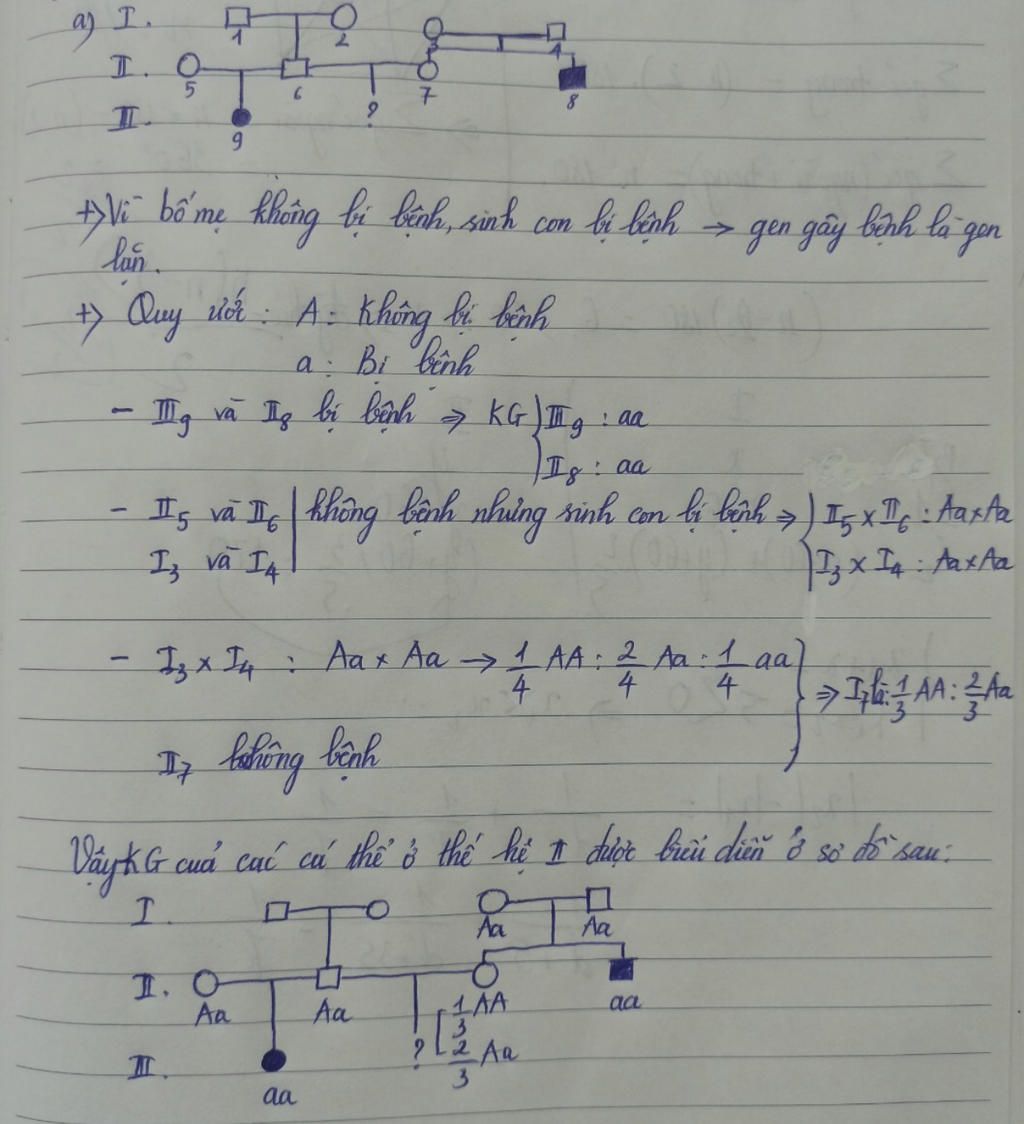 a) I. 1 2 3 4
II. 5 6 ? 7 8
III. 9
+> Vì bố mẹ không bị bệnh, sinh con bị bệnh → gen gây bệnh là gen
lặn.
+> Quy ước: A: Không bị bệnh
a: Bị bệnh
- III9 và II8 bị bệnh ⇒ KG } III9 : aa
II8 : aa
- II5 và II6 | không bệnh nhưng sinh con bị bệnh ⇒ } II5 x II6 : Aa x Aa
I3 và I4 | I3 x I4 : Aa x Aa
- I3 x I4 : Aa x Aa → 1/4 AA : 2/4 Aa : 1/4 aa } ⇒ I7 là: 1/3 AA : 2/3 Aa
II7 không bệnh
Vậy KG của các cá thể ở thế hệ II được biểu diễn ở sơ đồ sau:
I. Aa Aa
II. Aa Aa ? [ 1/3 AA 2/3 Aa aa
III. aa